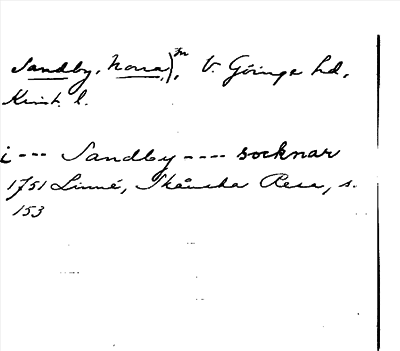 Sandby, Norra,) sn, V. Göinge hd,
Krist. l.
i --- Sandby ---- socknar
1751 Linné, Skånska Resa, s.
153